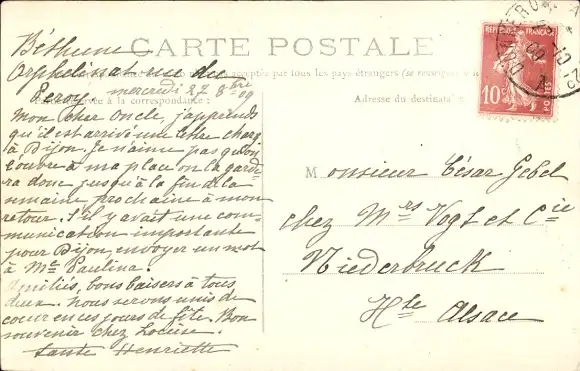 Béthune
CARTE POSTALE
Orphelinat rue du
acceptés par tous les pays étrangers (se renseigner
Peroy
mercredi 27 8bre 09
à la correspondance
Adresse du destinataire
Mon cher Oncle, j'apprends
qu'il est arrivé une lettre charg
à Dijon. Je n'aime pas qu'on
l'ouvre à ma place on la garde
ra donc jusqu'à la fin de la
semaine prochaine à mon
retour. S'il y avait une com-
munication importante
pour Dijon, envoyer un mot
à Me Paulina.
Amitiés, bons baisers à tous
deux. Nous serons unis de
coeur en ces jours de fête. Bon
souvenir chez
Henriette
REPUBLIQUE FRANÇAISE
10c
POSTES
Monsieur César Gebel
chez Mrs Vogt et Cie
Niederbruck
Hte Alsace